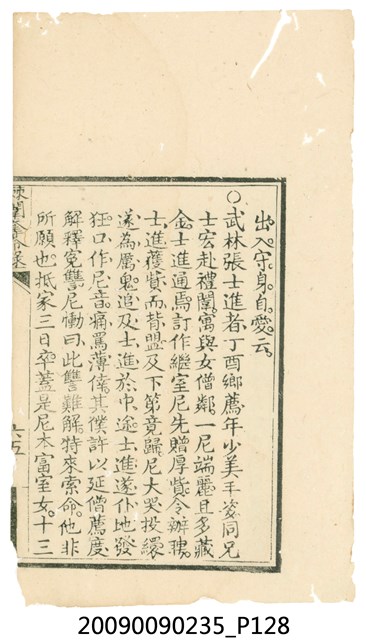 出入守身自愛云
○武林張士進者丁酉鄉薦年少美丰姿同兄
士宏赴禮闈寓與女僧鄰一尼端麗且多藏
金士進通焉訂作繼室尼先贈厚貲令辦聘
士進獲貲而背盟及下第竟歸尼大哭投繯
遂為厲鬼追及士進於中途士進遂仆地發
狂口作尼音痛罵薄倖其僕許以延僧薦度
解釋冤讐尼慟曰此讐難解特來索命他非
所願也抵家三日卒蓋是尼本富室女十三
六五
20090090235_P128